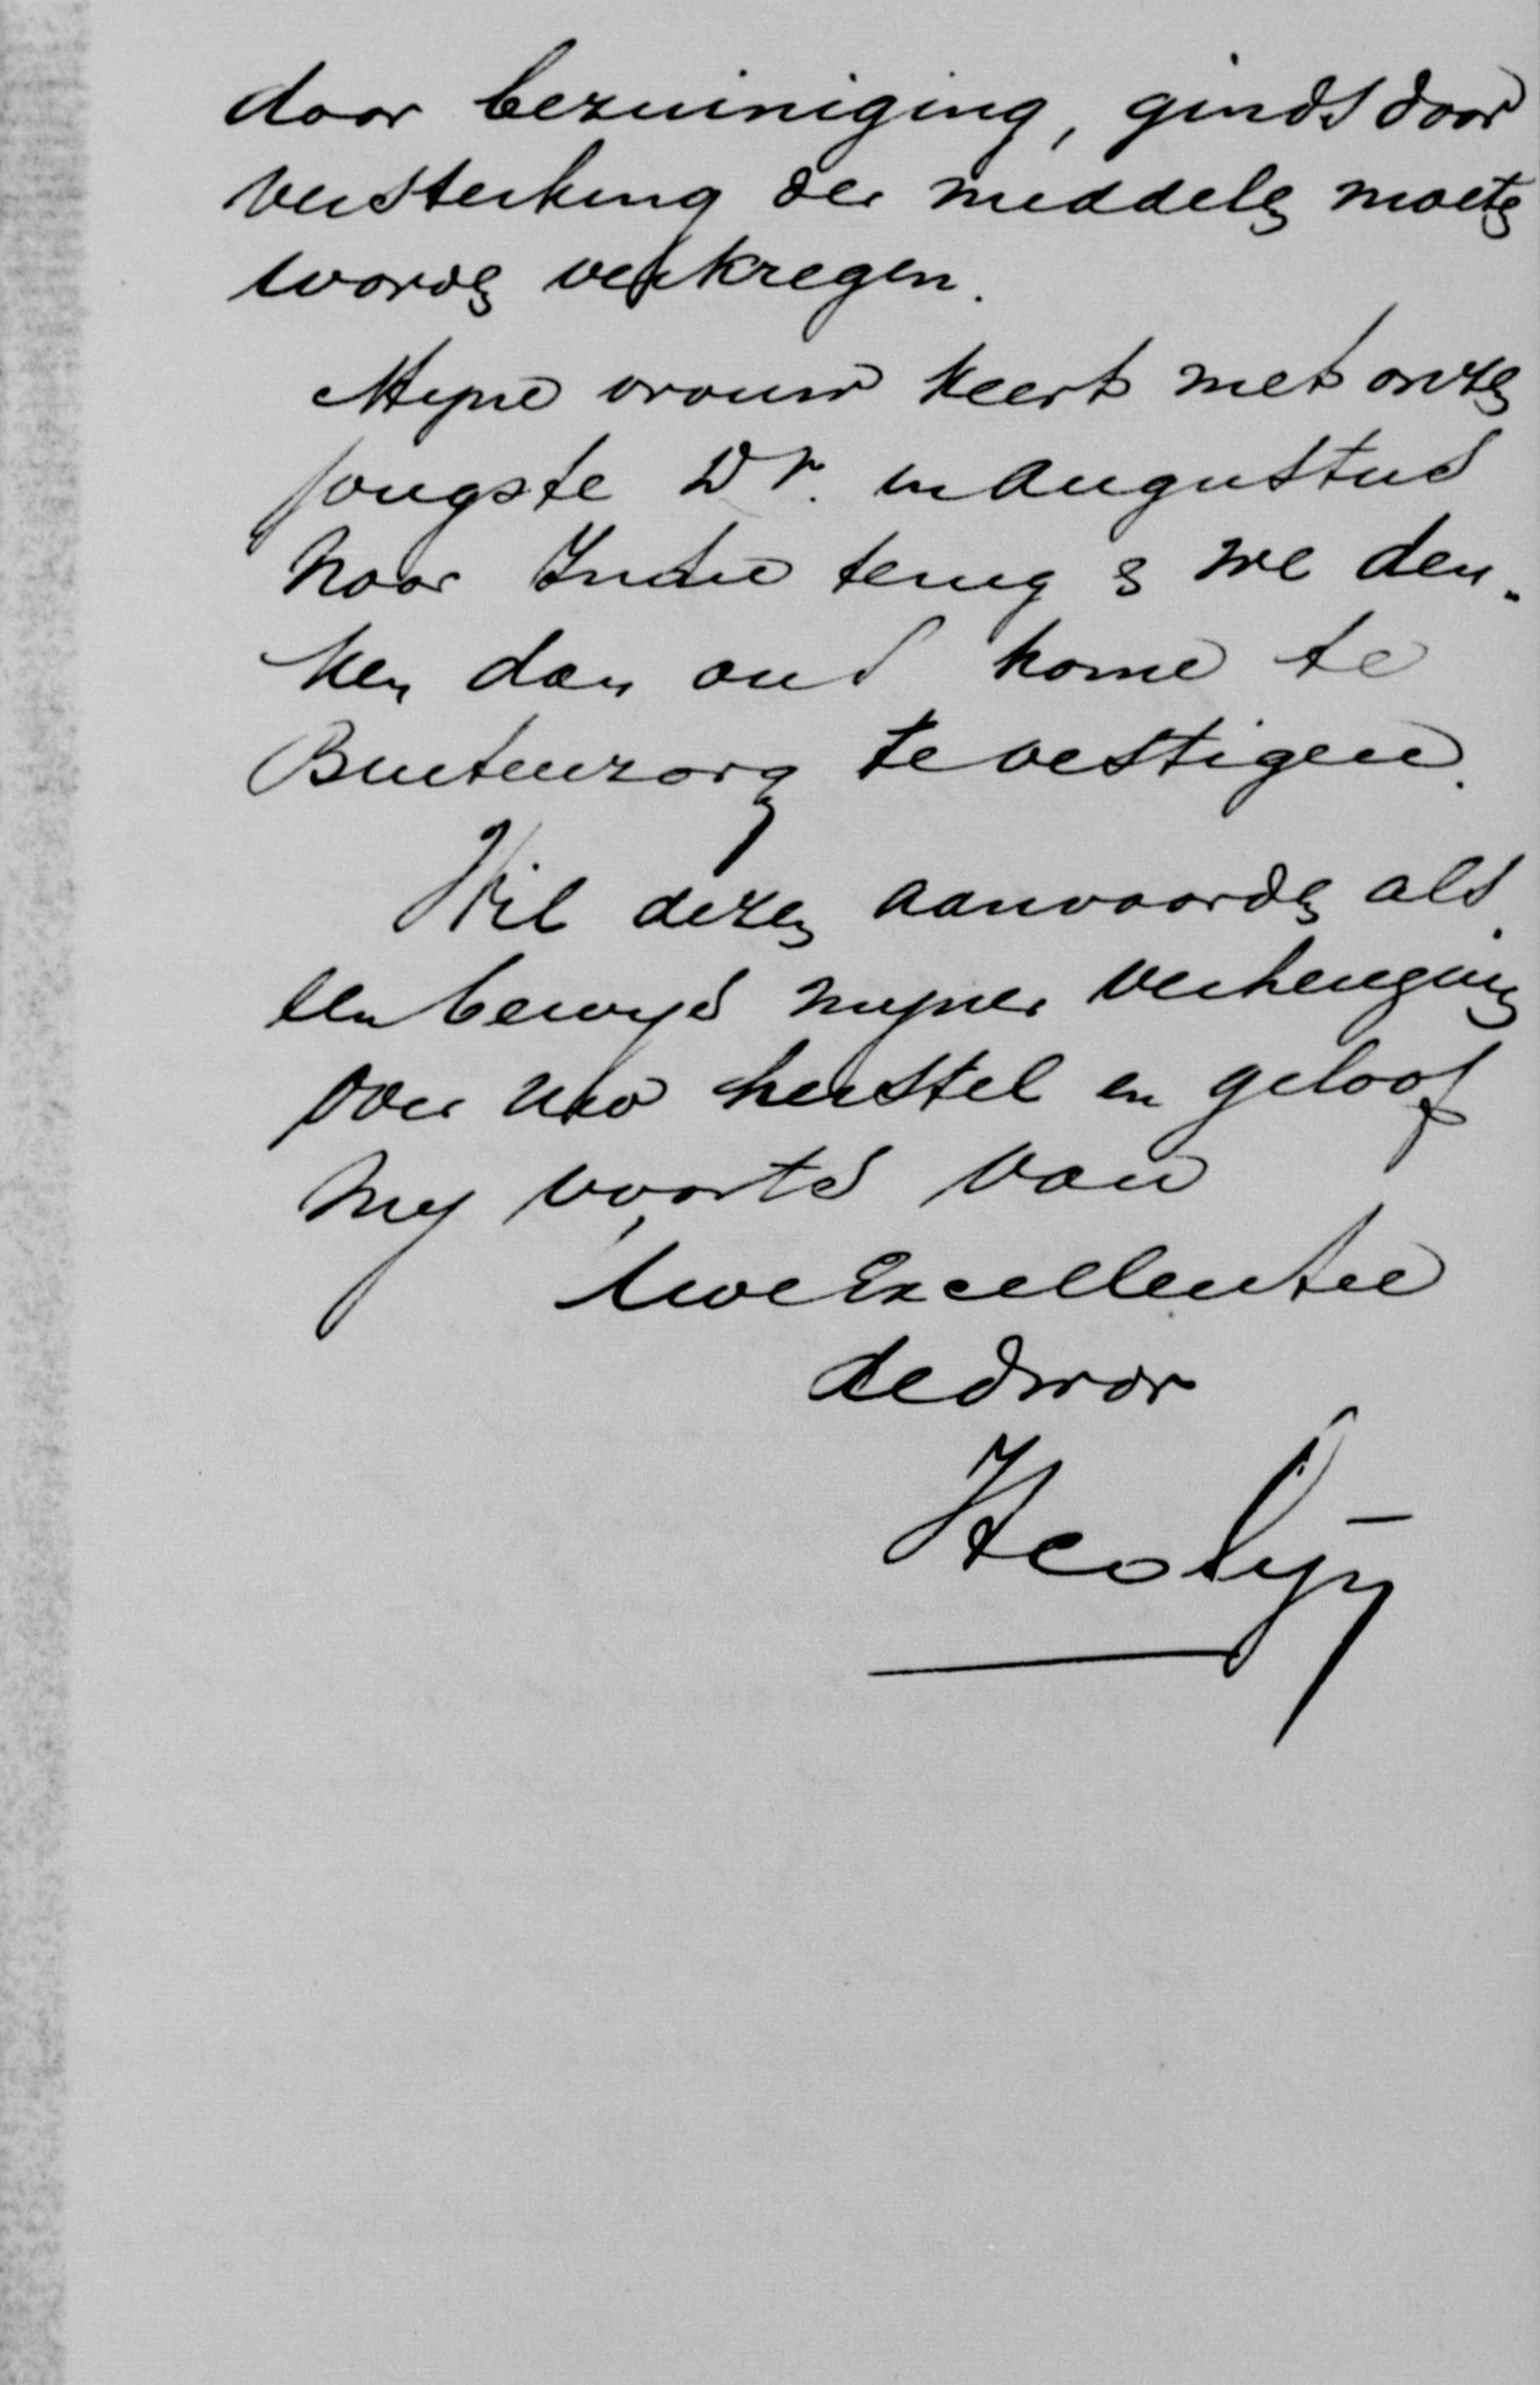 door bezuiniging, ginds door
versterking der middelen moeten
worden verkregen.
Mijne vrouw keert met onzen
jongste Dr. in Augustus
naar Indie terug & we den-
ken dan ons home te
Buitenzorg te vestigen.
Wil dezen aanvaarden als
een bewijs mijner verheuging
over uw herstel en geloof
mij voorts van
Uwe Excellentie
dedwdr
HColijn